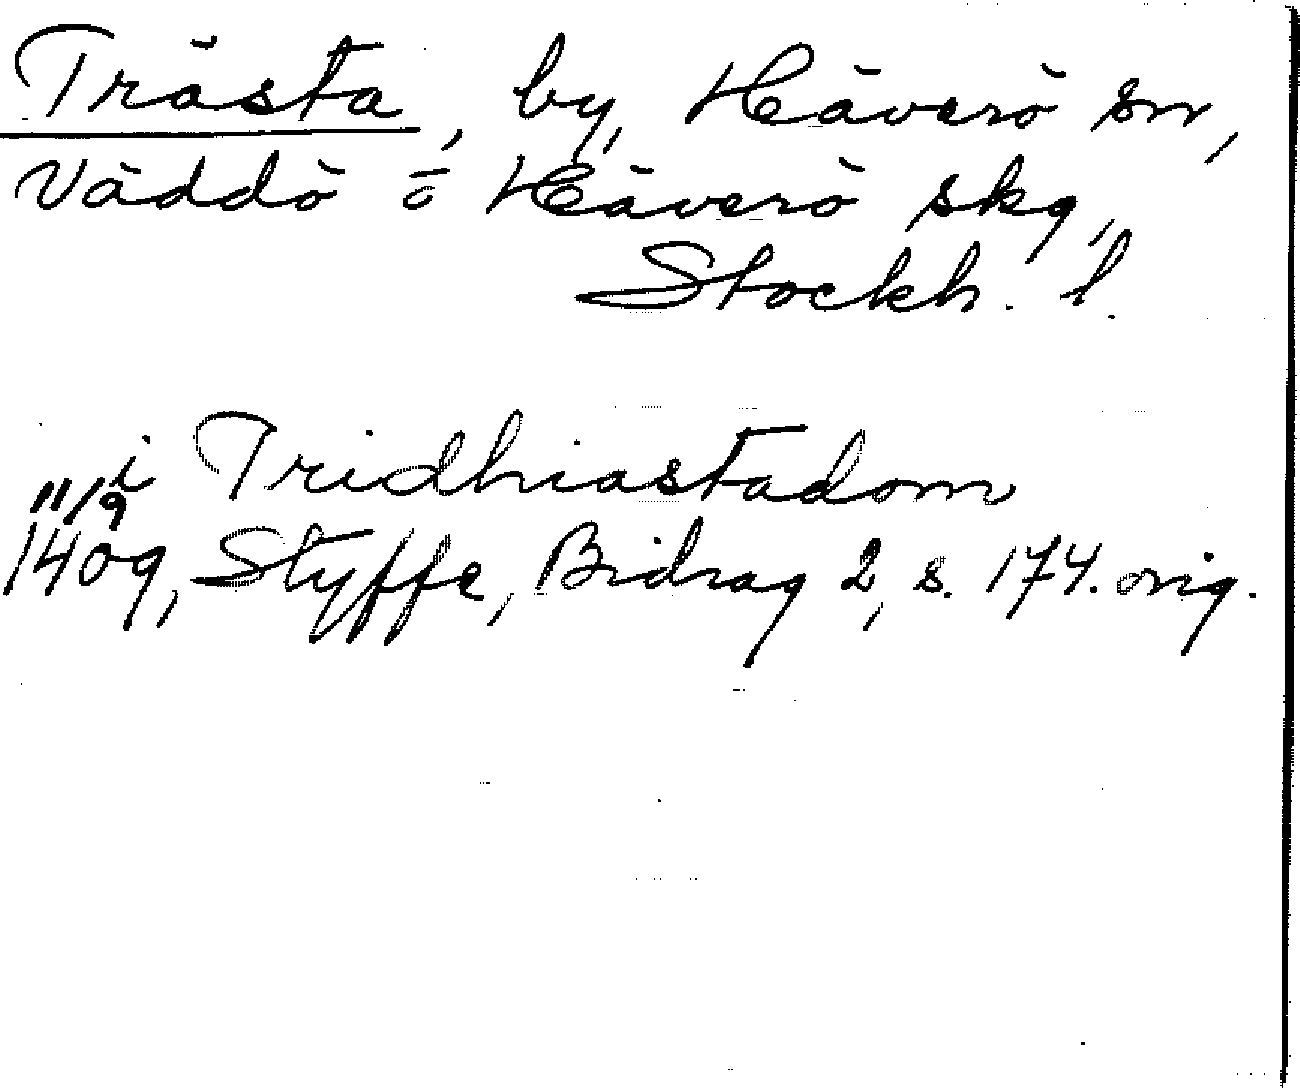 Trästa, by, Häverö sn,
Väddö o Häverö skg,
Stockh. l.
i Tridhiastadom
11/9
1409, Styffe, Bidrag 2, s. 174. orig.